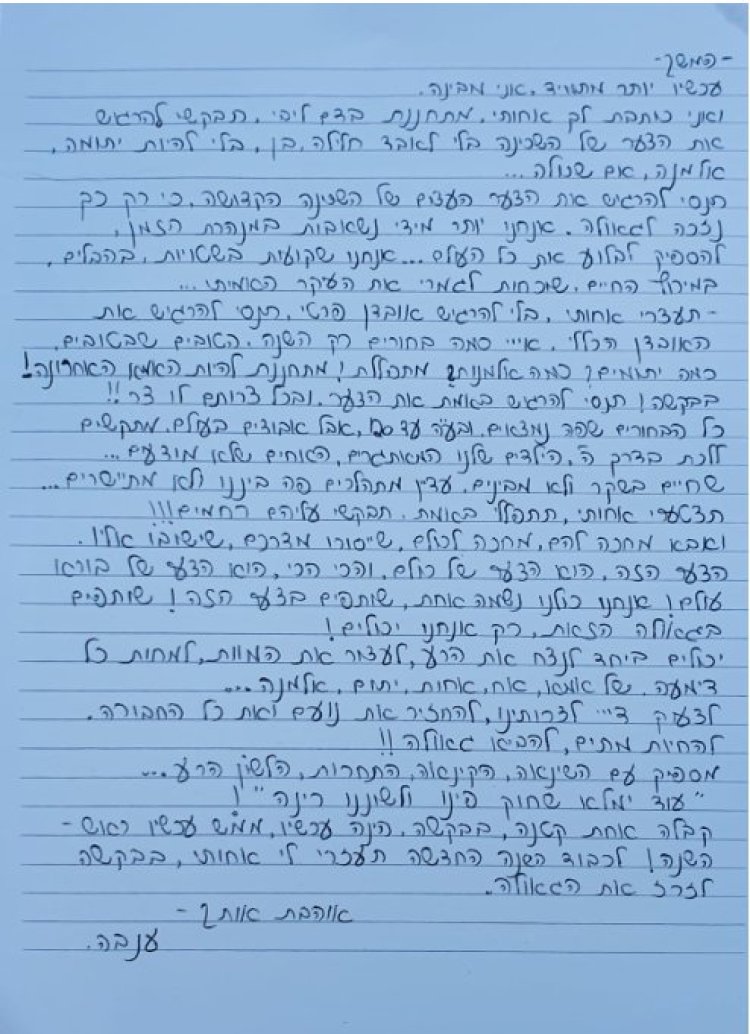 -המשך-
עכשיו יותר מתמיד, אני מבינה.
ואני כותבת לך אחותי, מתחננת בדם ליבי, תבקשי להרגיש
את הצער של השכינה בלי לאבד חלילה, בן, בלי להיות יתומה,
אלמנה, אם שכולה...
תנסי להרגיש את הצער העצום של השכינה הקדושה, כי רק כך
נזכה לגאולה. אנחנו יותר מידי נשאבות במנהרת הזמן,
להספיק לבלוע את כל העולם... אנחנו שקועות בשטויות, בהבלים,
במירוץ החיים, שוכחות לגמרי את העיקר האמיתי...
- תעצרי אחותי, בלי להרגיש אובדן פרטי, תנסי להרגיש את
האובדן הכללי. אייי כמה בחורים רק השנה, הטובים שבטובים,
כמה יתומים? כמה אלמנות? מתפללת! מתחננת להיות האמא האחרונה!
בבקשה! תנסי להרגיש באמת את הצער. ובכל צרותם לו צר!!
כל הבחורים שפה נמצאים, ובע״ה עד 120, אבל אבודים בעולם, מתקשים
ללכת בדרך ה', הילדים שלנו המאותגרים, האחים שלא מודעים...
שחיים בשקר ולא מבינים, עדין מתהלכים פה ביננו ולא מתיישרים...
תצטערי אחותי, תתפללי באמת, תבקשי עליהם רחמים!!!
ואבא מחכה להם, מחכה לכולם, שיסורו מדרכם, שישובו אליו.
הצער הזה, הוא הצער של כולם, והכי הכי, הוא הצער של בורא
עולם! אנחנו כולנו נשמה אחת, שותפים בצער הזה! שותפים
בגאולה הזאת, רק אנחנו יכולים!
יכולים ביחד לנצח את הרע, לעצור את המוות, למחות כל
דימעה, של אמא, אח, אחות, יתום, אלמנה...
לצעוק די לצרותינו, להחזיר את נועם ואת כל החבורה.
להחיות מתים, להביא גאולה!!
מספיק עם השינאה, הקינאה, התחרות, הלשון הרע...
"עוד ימלא שחוק פינו ולשוננו רינה"!
קבלה אחת קטנה, בבקשה, הינה עכשיו, ממש עכשיו ראש-
השנה! לכבוד השנה החדשה תעזרי לי אחותי, בבקשה
לזרז את הגאולה.
אוהבת אותך -
ענבה.